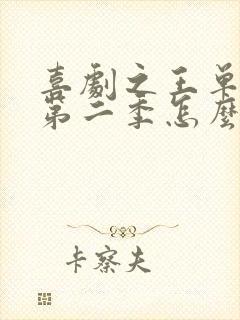 喜劇之王单
第二季怎麼
卡察夫